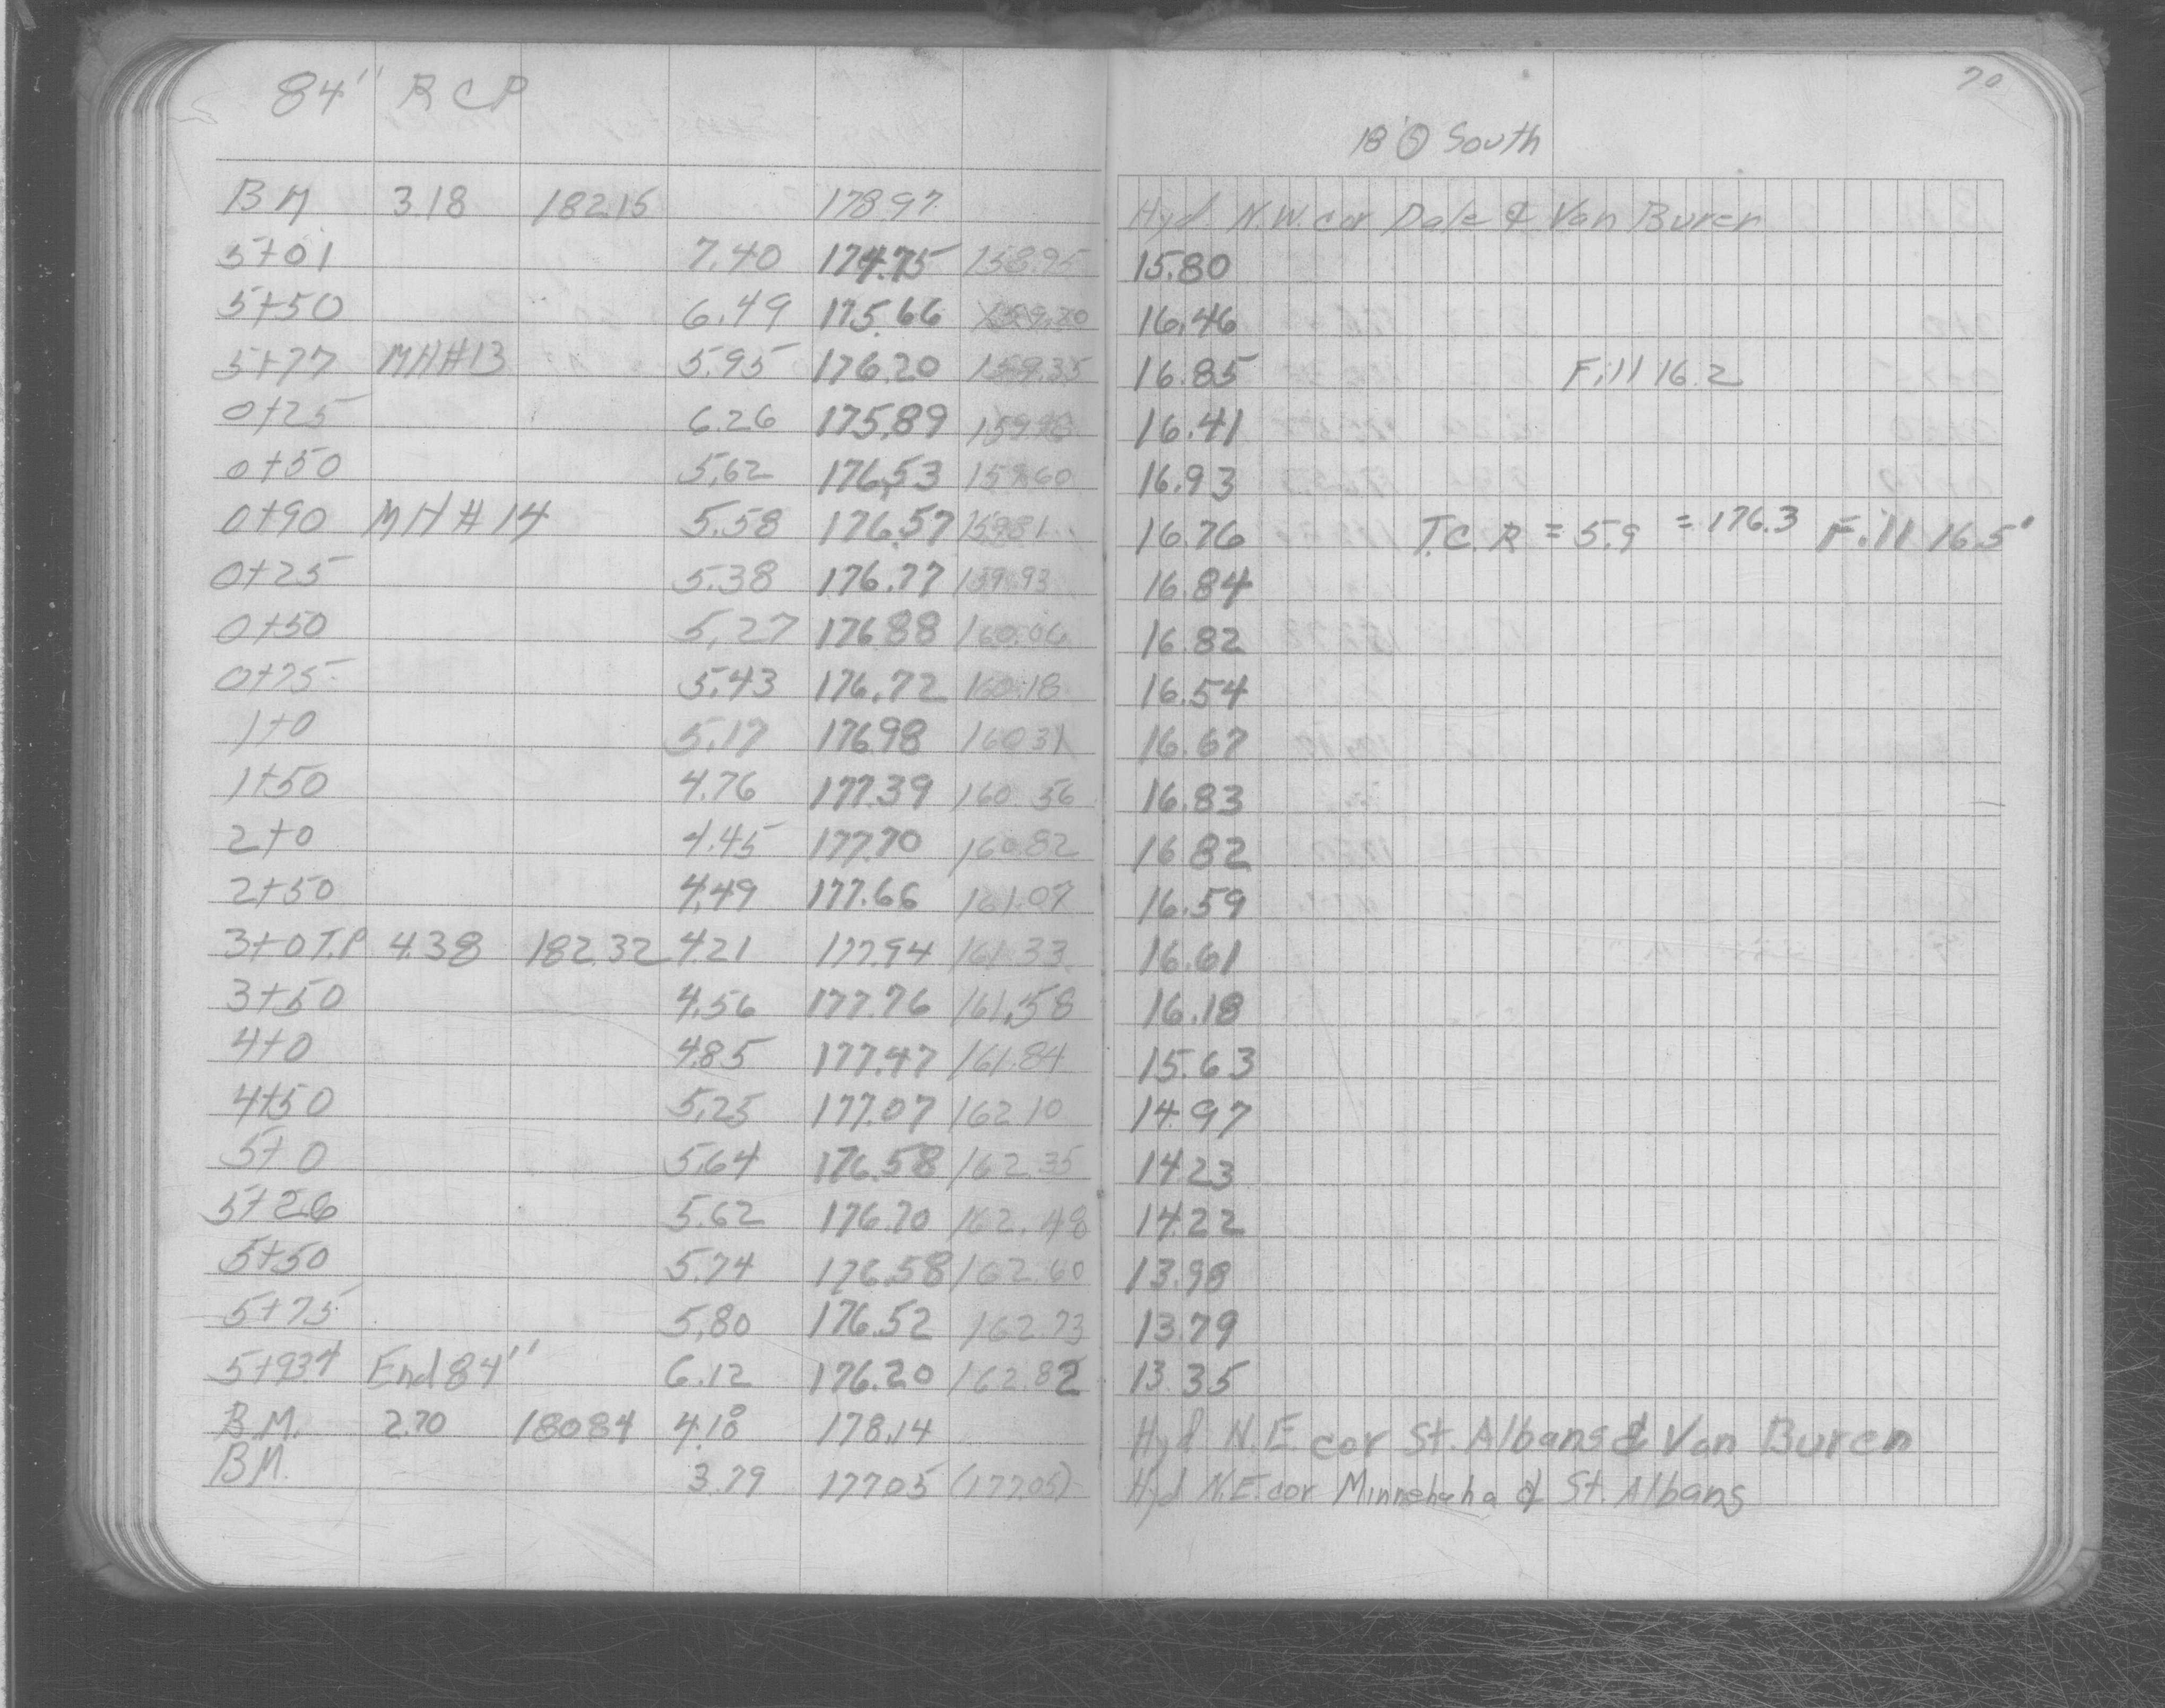 84" RCP
70
18' Ⓢ South
BM 3.18 182.15 178.97 Hyd. N.W. cor Dale & Van Buren
5+01 7.40 174.75 158.95 15.80
5+50 6.49 175.66 159.20 16.46
5+77 MH#13 5.95 176.20 159.35 16.85 Fill 16.2
0+25 6.26 175.89 159.48 16.41
0+50 5.62 176.53 159.60 16.93
0+90 MH#14 5.58 176.57 159.81 16.76 T.C.R = 5.9 = 176.3 Fill 16.5'
0+25 5.38 176.77 159.93 16.84
0+50 5.27 176.88 160.06 16.82
0+75 5.43 176.72 160.18 16.54
1+0 5.17 176.98 160.31 16.67
1+50 4.76 177.39 160.56 16.83
2+0 4.45 177.70 160.82 16.82
2+50 4.49 177.66 161.07 16.59
3+0 T.P. 4.38 182.32 4.21 177.94 161.33 16.61
3+50 4.56 177.76 161.58 16.18
4+0 4.85 177.47 161.84 15.63
4+50 5.25 177.07 162.10 14.97
5+0 5.64 176.58 162.35 14.23
5+26 5.62 176.70 162.48 14.22
5+50 5.74 176.58 162.60 13.98
5+75 5.80 176.52 162.73 13.79
5+93.4 End 84" 6.12 176.20 162.82 13.35
B.M. 2.70 180.84 4.18 178.14 Hyd N.E. cor St. Albans & Van Buren
BM. 3.79 177.05 (177.05) Hyd N.E. cor Minnehaha & St. Albans